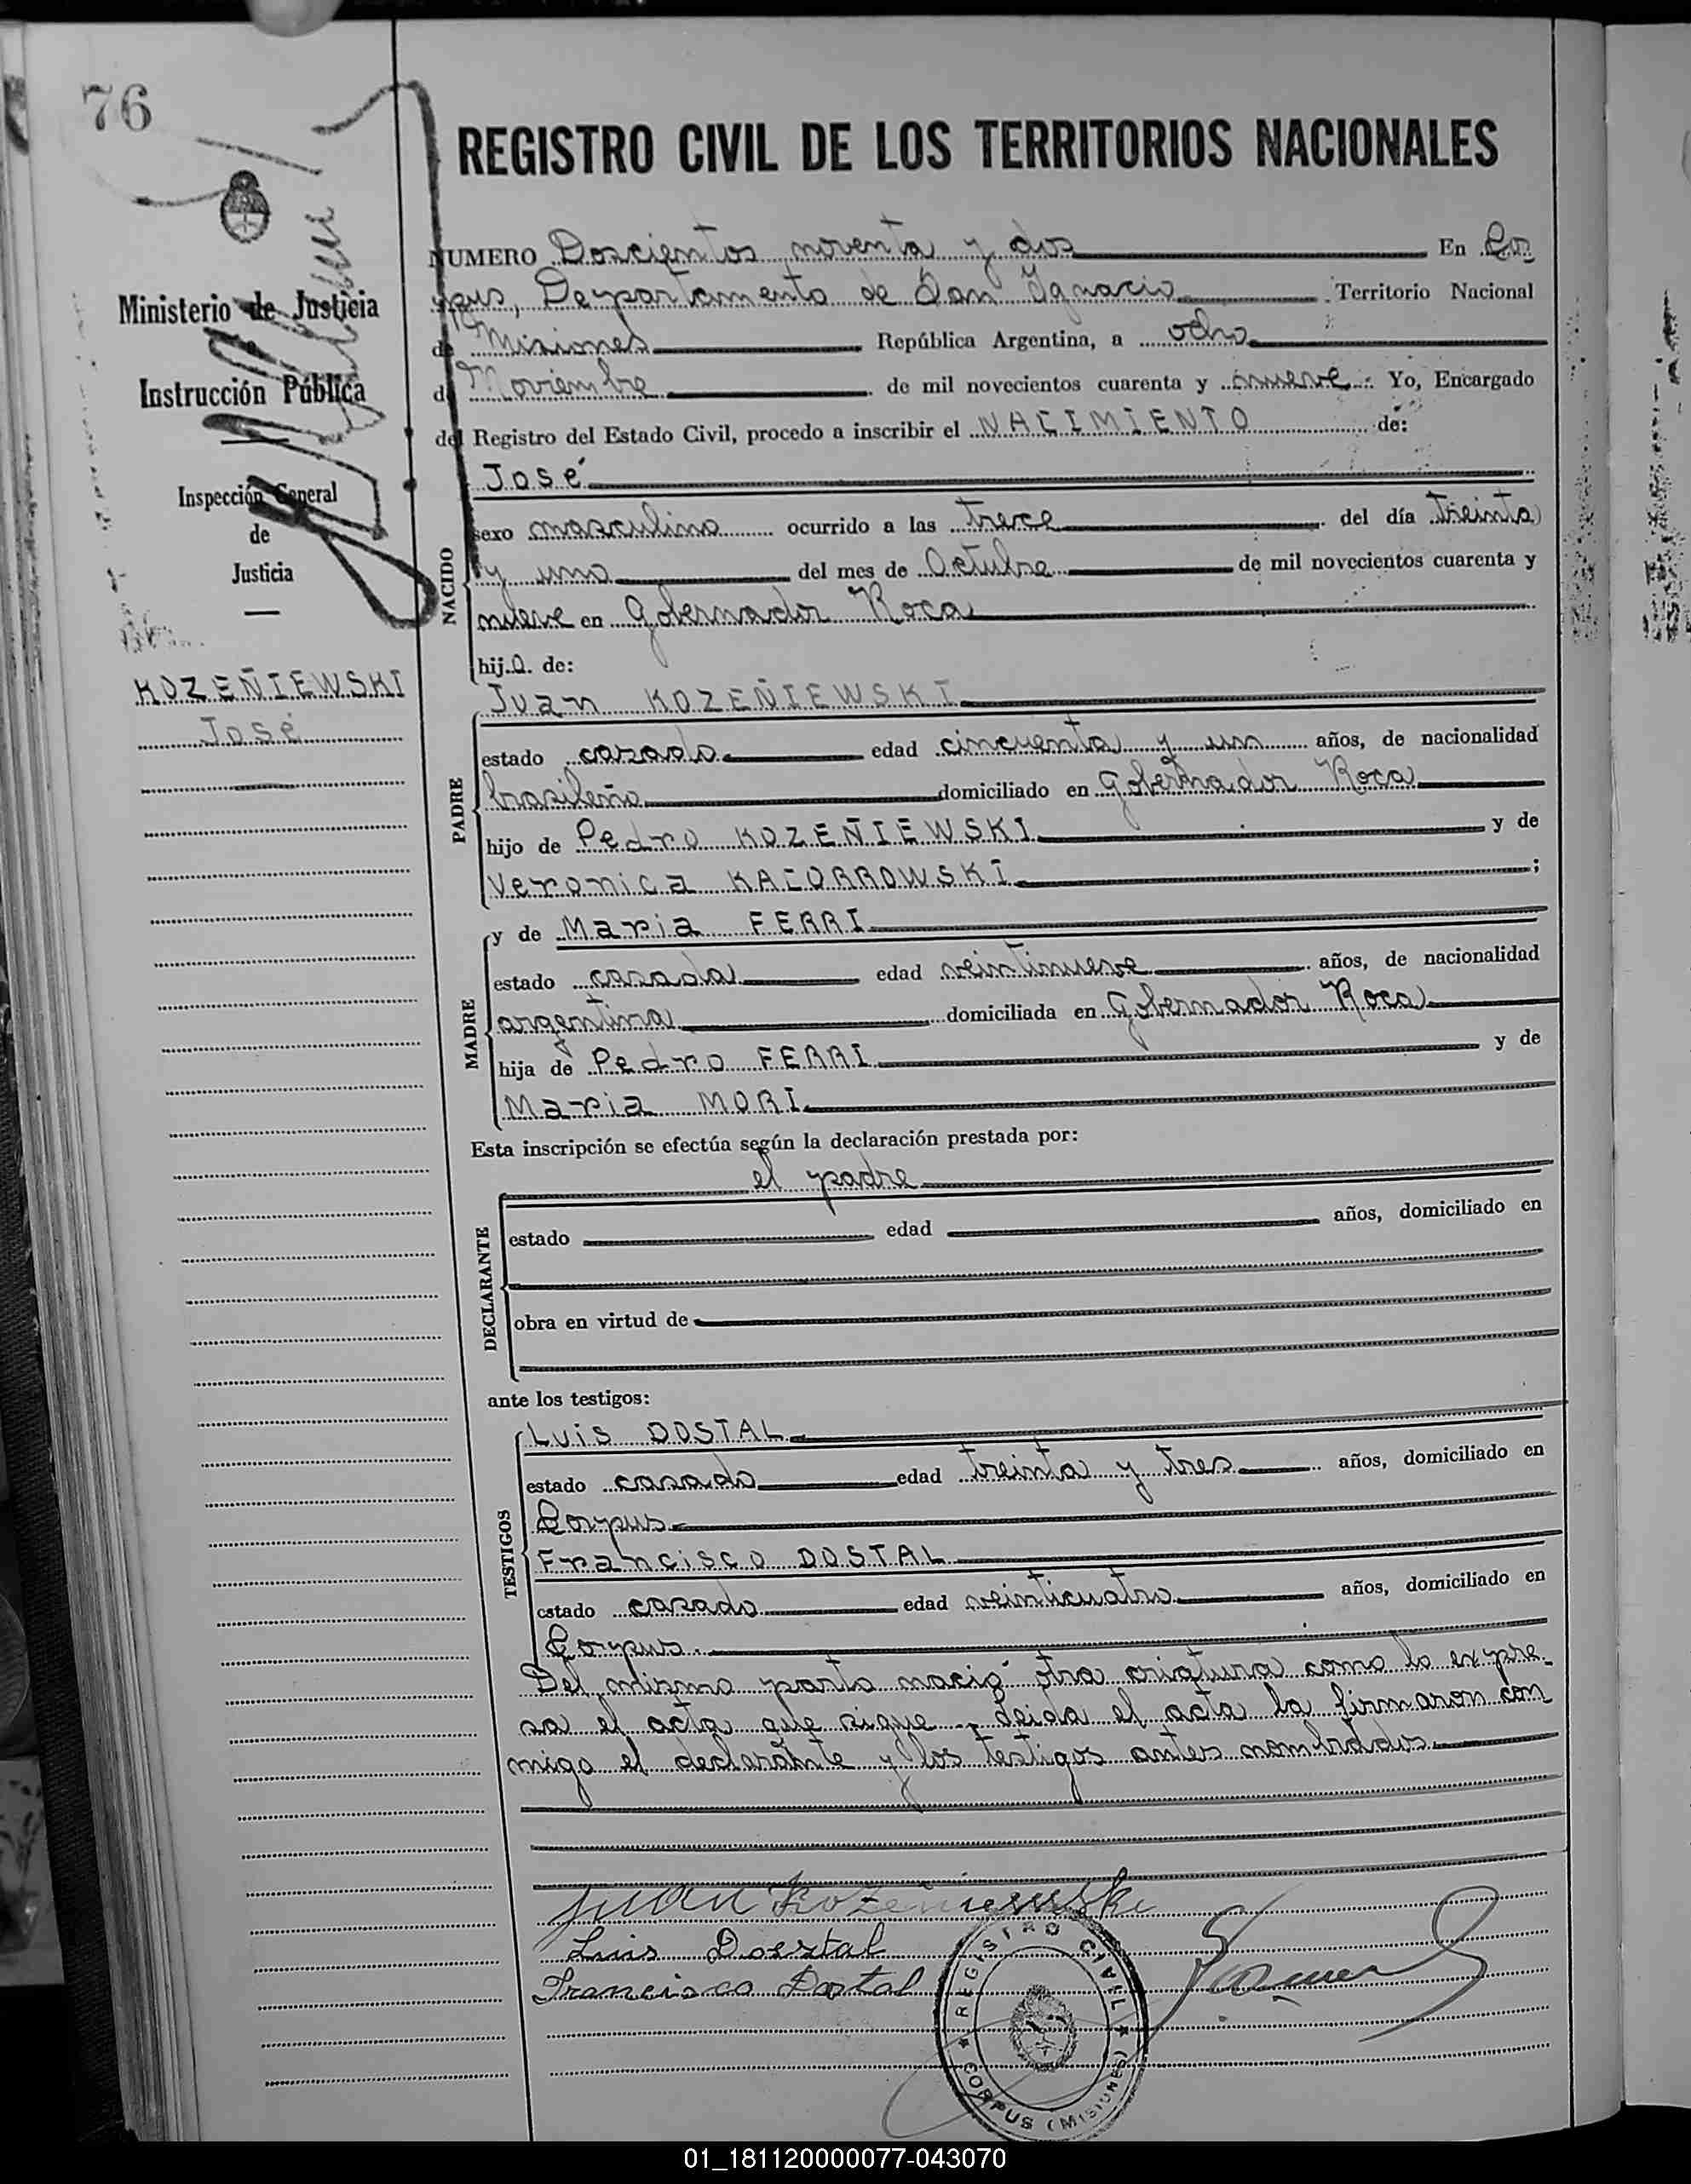 76
REGISTRO CIVIL DE LOS TERRITORIOS NACIONALES
Ministerio de Justicia
Instrucción Pública
Inspección General
de
Justicia
KOZEÑIEWSKI
José
NUMERO Doscientos noventa y dos En Cor
pus, Departamento de San Ignacio Territorio Nacional
de Misiones República Argentina, a ocho
de Noviembre de mil novecientos cuarenta y nueve. Yo, Encargado
del Registro del Estado Civil, procedo a inscribir el NACIMIENTO de:
NACIDO
José
sexo masculino ocurrido a las trece del día treinta
y uno del mes de Octubre de mil novecientos cuarenta y
nueve en Gobernador Roca
hijo de:
PADRE
Juan KOZEÑIEWSKI
estado casado edad cincuenta y un años, de nacionalidad
brasileño domiciliado en Gobernador Roca
hijo de Pedro KOZEÑIEWSKI y de
Veronica KACORROWSKI ;
MADRE
y de Maria FERRI
estado casada edad veintinueve años, de nacionalidad
argentina domiciliada en Gobernador Roca
hija de Pedro FERRI y de
Maria MORI
Esta inscripción se efectúa según la declaración prestada por:
DECLARANTE
el padre
estado edad años, domiciliado en
obra en virtud de
ante los testigos:
TESTIGOS
Luis DOSTAL
estado casado edad treinta y tres años, domiciliado en
Corpus
Francisco DOSTAL
estado casado edad veinticuatro años, domiciliado en
Corpus.
Del mismo parto nació otra criatura como lo expre-
sa el acta que sigue.- Leida el acta la firmaron con
migo el declarante y los testigos antes nombrados
Juan Kozeniewski
Luis Dostal
Francisco Dostal
REGISTRO CIVIL
CORPUS (MISIONES)
01_181120000077-043070